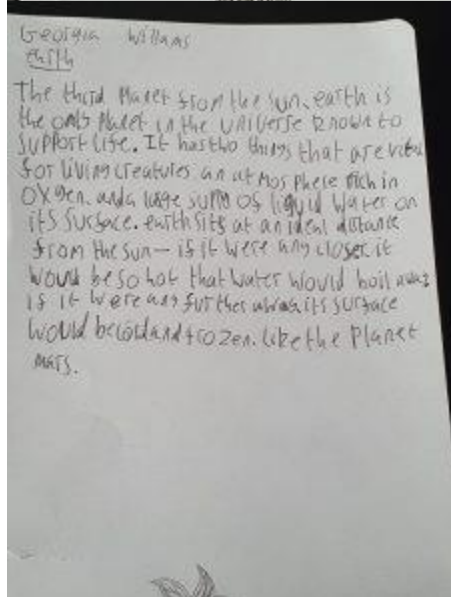 Georgia Willams
Earth
The third Planet from the sun. earth is
the only Planet in the UNiverse known to
support life. It has two things that are vital
for living creatures an atmosphere rich in
oxygen. and a large supply of liquid water on
its surface. earth sits at an ideal distance
from the sun— if it were any closer it
would be so hot that water would boil away
if it were any further away its surface
would be cold and frozen. like the Planet
mars.